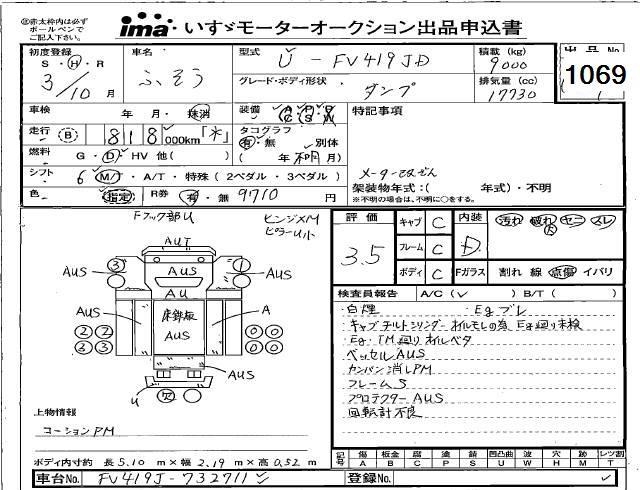 ㊟赤太枠内は必ず
ボールペンで
ご記入下さい。
ima いすゞモーターオークション出品申込書
初度登録 車名 型式 U - FV419JD 積載(kg) 9000 出品No.
S・H・R ふそう グレード・ボディ形状 ダンプ 排気量(cc) 17730 1069
3/10月
車検 年 月・抹消 装備 A P A C S W 特記事項
走行 B 818,000km「*」 タコグラフ
有・無 別体
燃料 G・D・HV 他( ) ( 年 月)
シフト 6 M/T・A/T・特殊(2ペダル・3ペダル) メーター改ざん
色 指定 R券 有・無 9710円 架装物年式:( 年式)・不明
※不明の場合は、不明に○をする。
Fフック部U ヒンジXM
ピラーU小
評価 3.5 キャブ C 内装 D 汚れ 破れ 大 ヤニ スレ
フレーム C
ボディ C Fガラス 割れ 線 点傷 イバリ
AUT
3 1
AUS AUS AUS
AU
AUS 床鉄板 A
AUS
2 2 0 0
3 3 0 0
AUS
U 欠
検査員報告 A/C(✓) B/T( )
・白煙 ・Egブレ
・キャブチルトシリンダーオイルモレの為Eg廻り未検
・Eg・TM廻りオイルベタ
・ベッセルAUS
・カンバン消しPM
・フレームS
・プロテクターAUS
・回転計不良
上物情報
コーションPM
ボディ内寸約 長5.10m×幅2.19m×高0.52m
記号 傷 板金 腐 塗 錆 凹凸曲 波 穴 跡 レンズ割
A B C P S U W H M T
車台No. FV419J-732711
登録No.